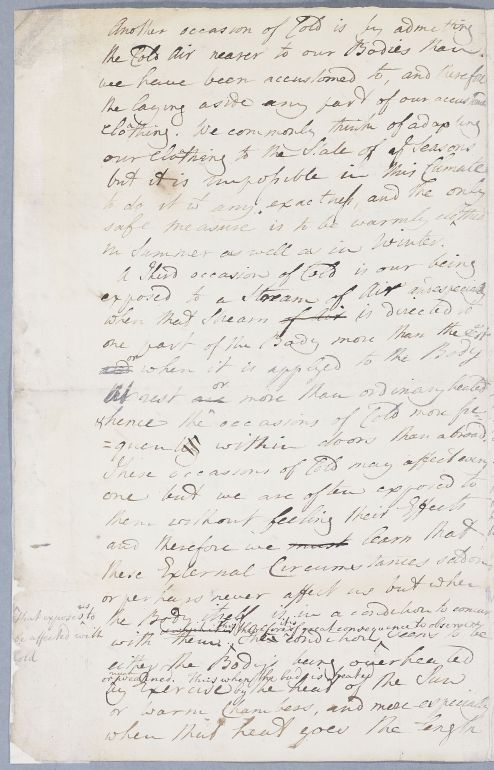 Another occasion of Cold is by admitting
the Cold Air nearer to our Bodies than
we have been accustomed to, and therefore
the laying aside any part of our accustomed
clothing. We commonly think of adapting
our clothing to the State of ye Seasons
but it is impossible in this Climate
to do it wt any exactness, and the only
safe measure is to be warmly clothed
in Summer as well as in Winter.
A Third occasion of Cold is our being
exposed to a Stream of Air especially
when that Stream of Air is directed to
one part of the Body more than the
and or when it is applied to the Body
at rest and or more than ordinary heated
hence the occasions of Cold more fre
=quently within doors than abroad.
These occasions of Cold may affect every
one but we are often exposed to
them without feeling their Effects
and therefore we must learn that
these External Circumstances seldom
or perhaps never affect us but when
the Body itself is in a condition to concur
That exposes us to
be affected with
Cold
it is of great consequence to observe
with them. The condition seems to be
either the Body's being overheated
or weakened. Thus when the body is heated
by Exercise by the heat of the Sun
or warm Chambers, and more especially
when that heat goes the length